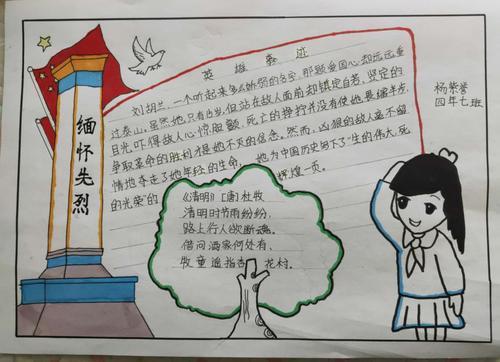 英雄事迹
刘胡兰,一个听起来多么娇弱的名字,那颗爱国心却远远重
过泰山,虽然她只有当岁,但站在敌人面前却镇定自若,坚定的
目光吓得敌人心惊胆颤,死亡的狰狞并没有使她畏缩半步,
争取革命的胜利才是她不灭的信念。然而,凶狠的敌人毫不留
情地夺走了她年轻的生命,她为中国历史留下了“生的伟大,死
的光荣”的辉煌一页。
缅怀先烈
杨紫誉
四年七班
《清明》[唐]杜牧
清明时节雨纷纷,
路上行人欲断魂。
借问酒家何处有,
牧童遥指杏花村。